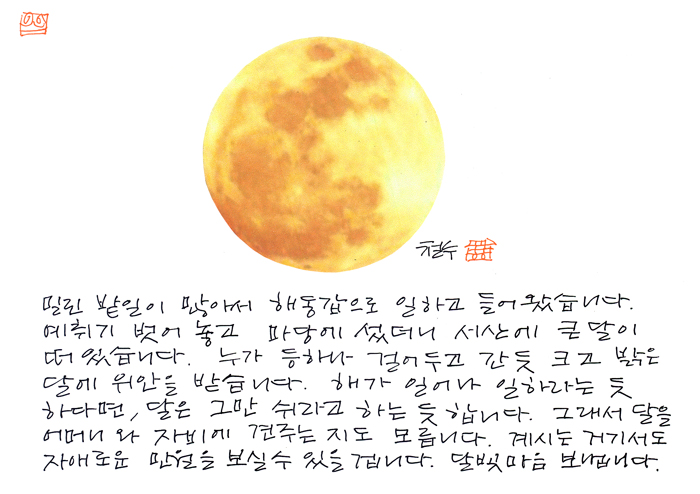 철수
밀린 밭일이 많아서 해동갑으로 일하고 들어왔습니다.
예취기 벗어 놓고 마당에 섰더니 서산에 큰 달이
떠 있습니다. 누가 등하나 걸어두고 간듯 크고 밝은
달에 위안을 받습니다. 해가 일어나 일하라는 듯
하다면, 달은 그만 쉬라고 하는 듯 합니다. 그래서 달을
어머니와 자비에 견주는지도 모릅니다. 계시는 거기서도
자애로운 만월을 보실 수 있을 겁니다. 달빛마음 보냅니다.